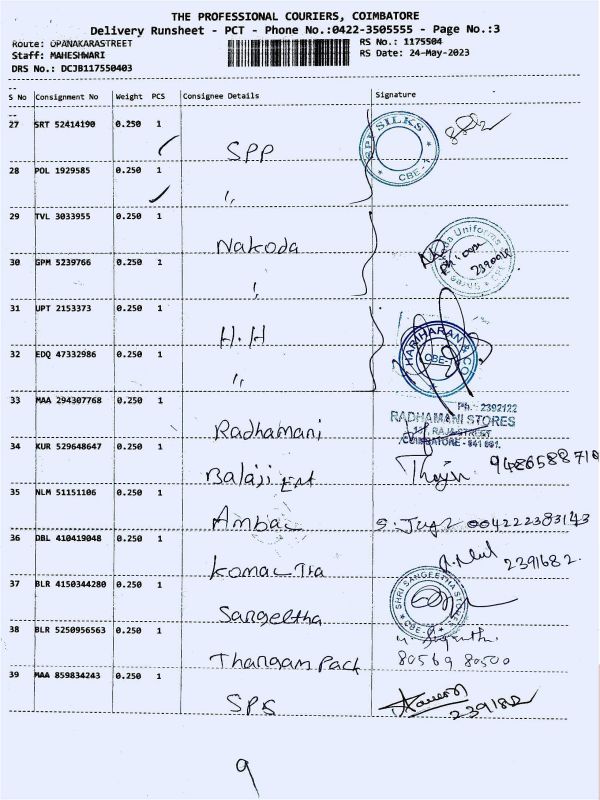 THE PROFESSIONAL COURIERS, COIMBATORE
Delivery Runsheet - PCT - Phone No.:0422-3505555 - Page No.:3
Route: OPANAKARASTREET RS No.: 1175504
Staff: MAHESHWARI RS Date: 24-May-2023
DRS No.: DCJB117550403
S No Consignment No Weight PCS Consignee Details Signature
27 SRT 52414190 0.250 1 SPP SILKS CBE-1
28 POL 1929585 0.250 1 "
29 TVL 3033955 0.250 1 Nakoda Uniforms
30 GPM 5239766 0.250 1 "
31 UPT 2153373 0.250 1 H.H HARIHARAN & CO CBE-1
32 EDQ 47332986 0.250 1 "
33 MAA 294307768 0.250 1 Radhamani Ph: 2392122
RADHAMANI STORES
RAJA STREET
COIMBATORE - 641 001.
34 KUR 529648647 0.250 1 Balaji Ent 9486588710
35 NLM 51151106 0.250 1 Ambac 004222383143
36 DBL 410419048 0.250 1 2391682.
37 BLR 4150344280 0.250 1 Sangeetha SHRI SANGEETHA STORES CBE-1
38 BLR 5250956563 0.250 1 Thangam Pack 80569 80500
39 MAA 859834243 0.250 1 SPS 239182
9